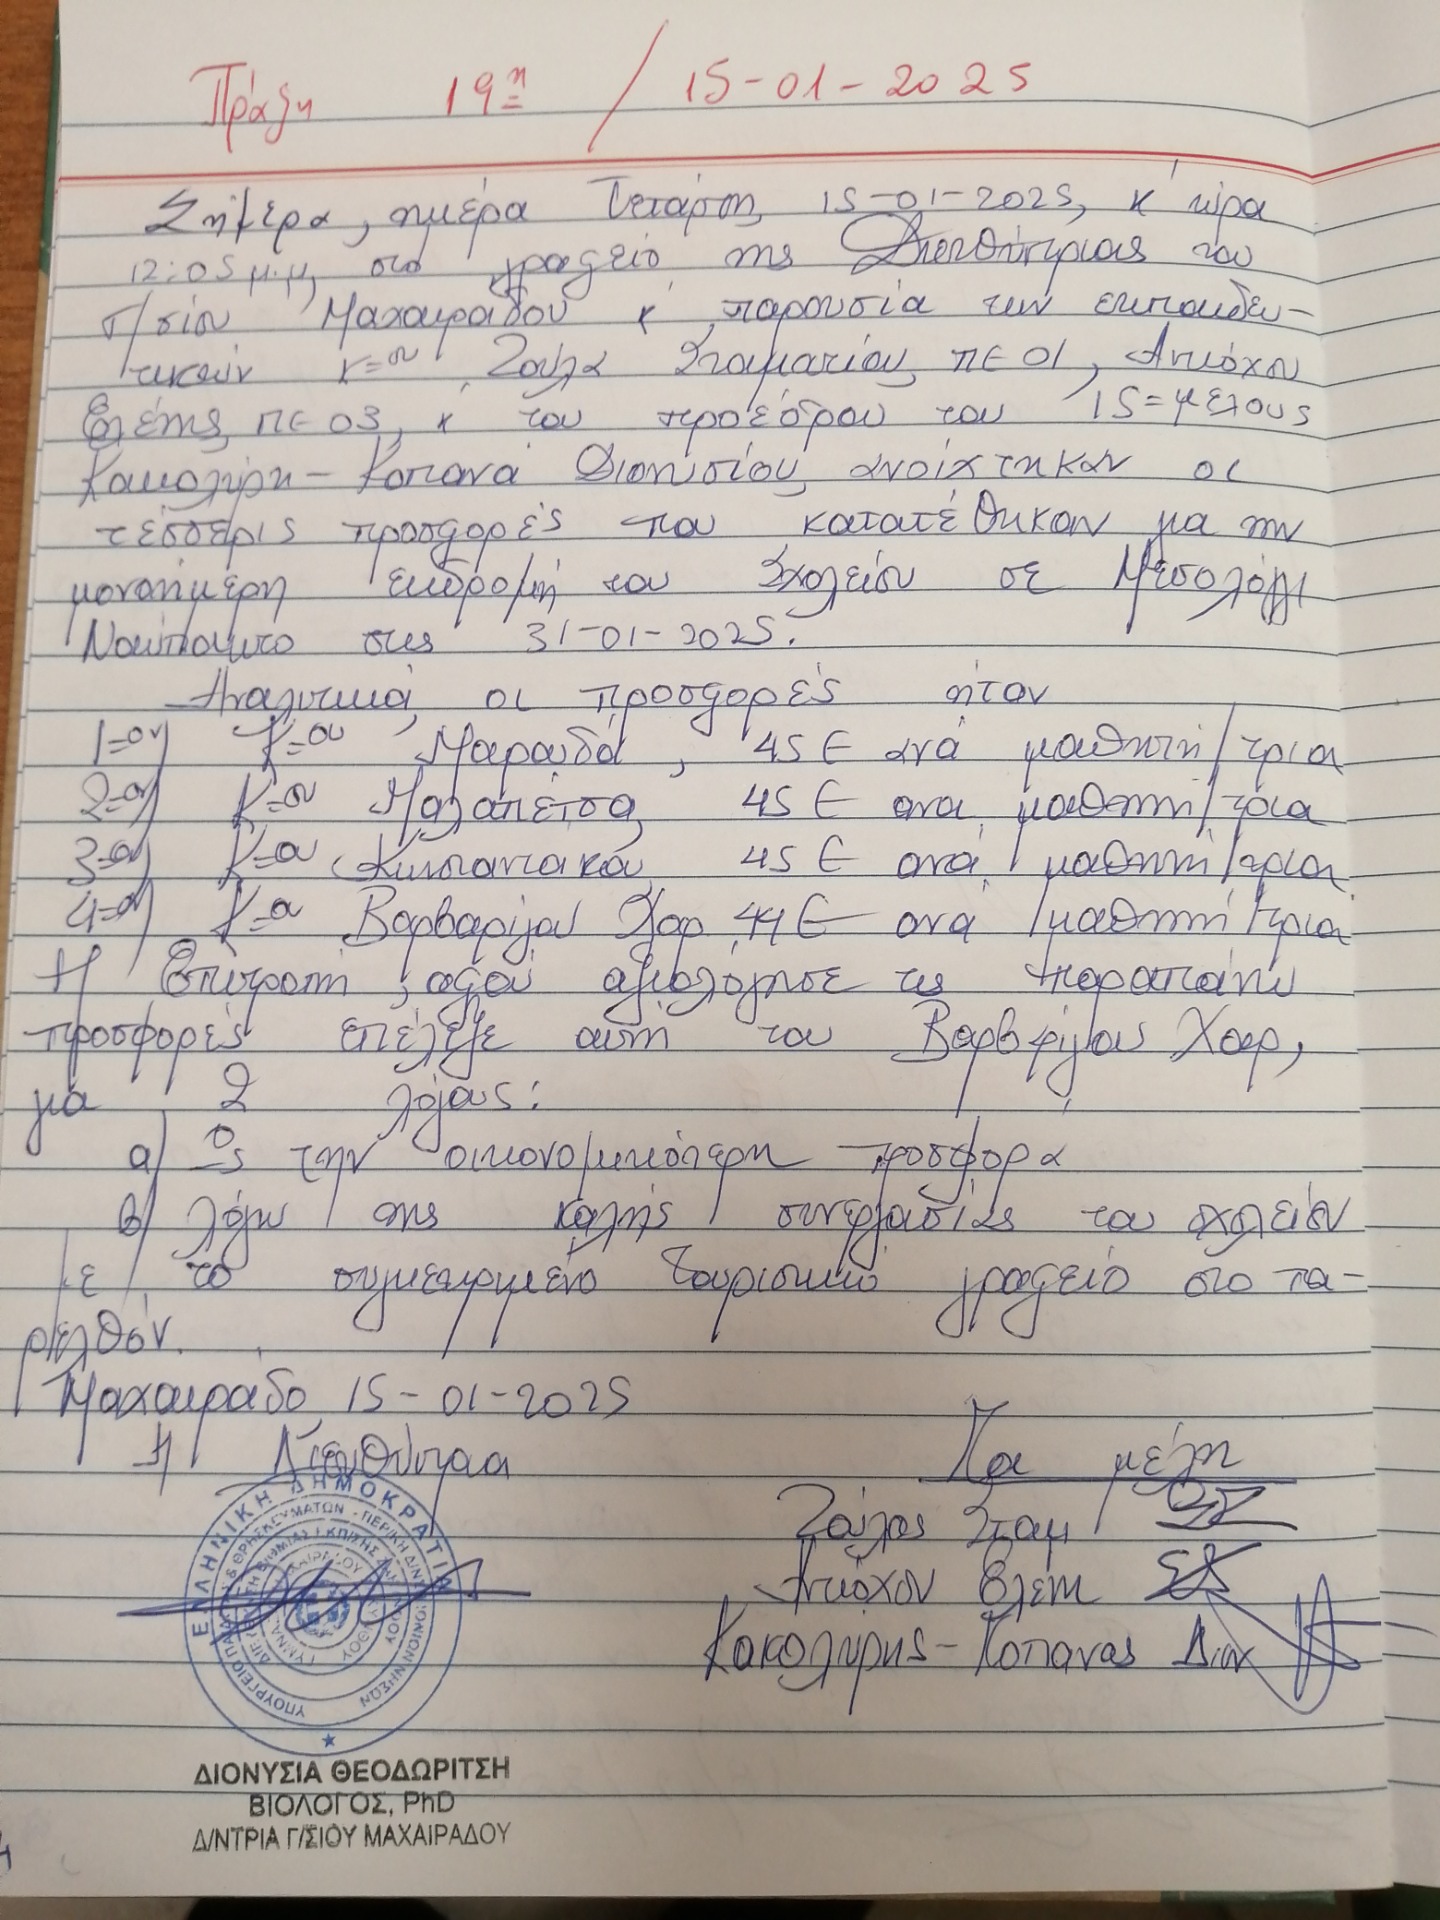 Πράξη 19η / 15-01-2025
Σήμερα, ημέρα Τετάρτη, 15-01-2025, κ' ώρα
12:05 μ.μ, στο γραφείο της Διευθύντριας του
Γ/σίου Μαχαιράδου κ παρουσία των εκπαιδευ-
τικών κ=ου Ζούλα Σταματίου, ΠΕ 01, Αντιόχου
Ελένης, ΠΕ 03, κ του προέδρου του 15=μελους
Κακολύρη-Κοπανά Διονυσίου, ανοίχτηκαν οι
τέσσερις προσφορές που κατατέθηκαν για την
μονοήμερη εκδρομή του Σχολείου σε Μεσολόγγι
Ναύπακτο στις 31-01-2025.
Αναλυτικά, οι προσφορές ήταν
1=ον) Κ=ου Μαρούδα, 45 € ανά μαθητή/τρια
2=ον) Κ=ου 45 € ανα μαθητή/τρια
3=ον) Κ=ου 45 € ανά μαθητή/τρια
4=ον) Κ=ου Βαρβαρίγου Χαρ, 44 € ανά μαθητή/τρια
Η Επιτροπή, αφού αξιολόγησε τις παραπάνω
προσφορές επέλεξε αυτή του Βαρβαρίγου Χαρ,
για 2 λόγους:
α) ως την οικονομικότερη προσφορα
β) λόγω της καλής συνεργασίας του σχολείου
με το συγκεκριμένο τουριστικό γραφείο στο πα-
ρελθόν.
Μαχαιράδο, 15-01-2025
Η Διευθύντρια
Τα μέλη
Ζούλας Σταμ
Αντιόχου Ελένη
Κακολύρης-Κοπανάς Διον
ΕΛΛΗΝΙΚΗ ΔΗΜΟΚΡΑΤΙΑ
ΔΙΟΝΥΣΙΑ ΘΕΟΔΩΡΙΤΣΗ
ΒΙΟΛΟΓΟΣ, PhD
Δ/ΝΤΡΙΑ Γ/ΣΙΟΥ ΜΑΧΑΙΡΑΔΟΥ